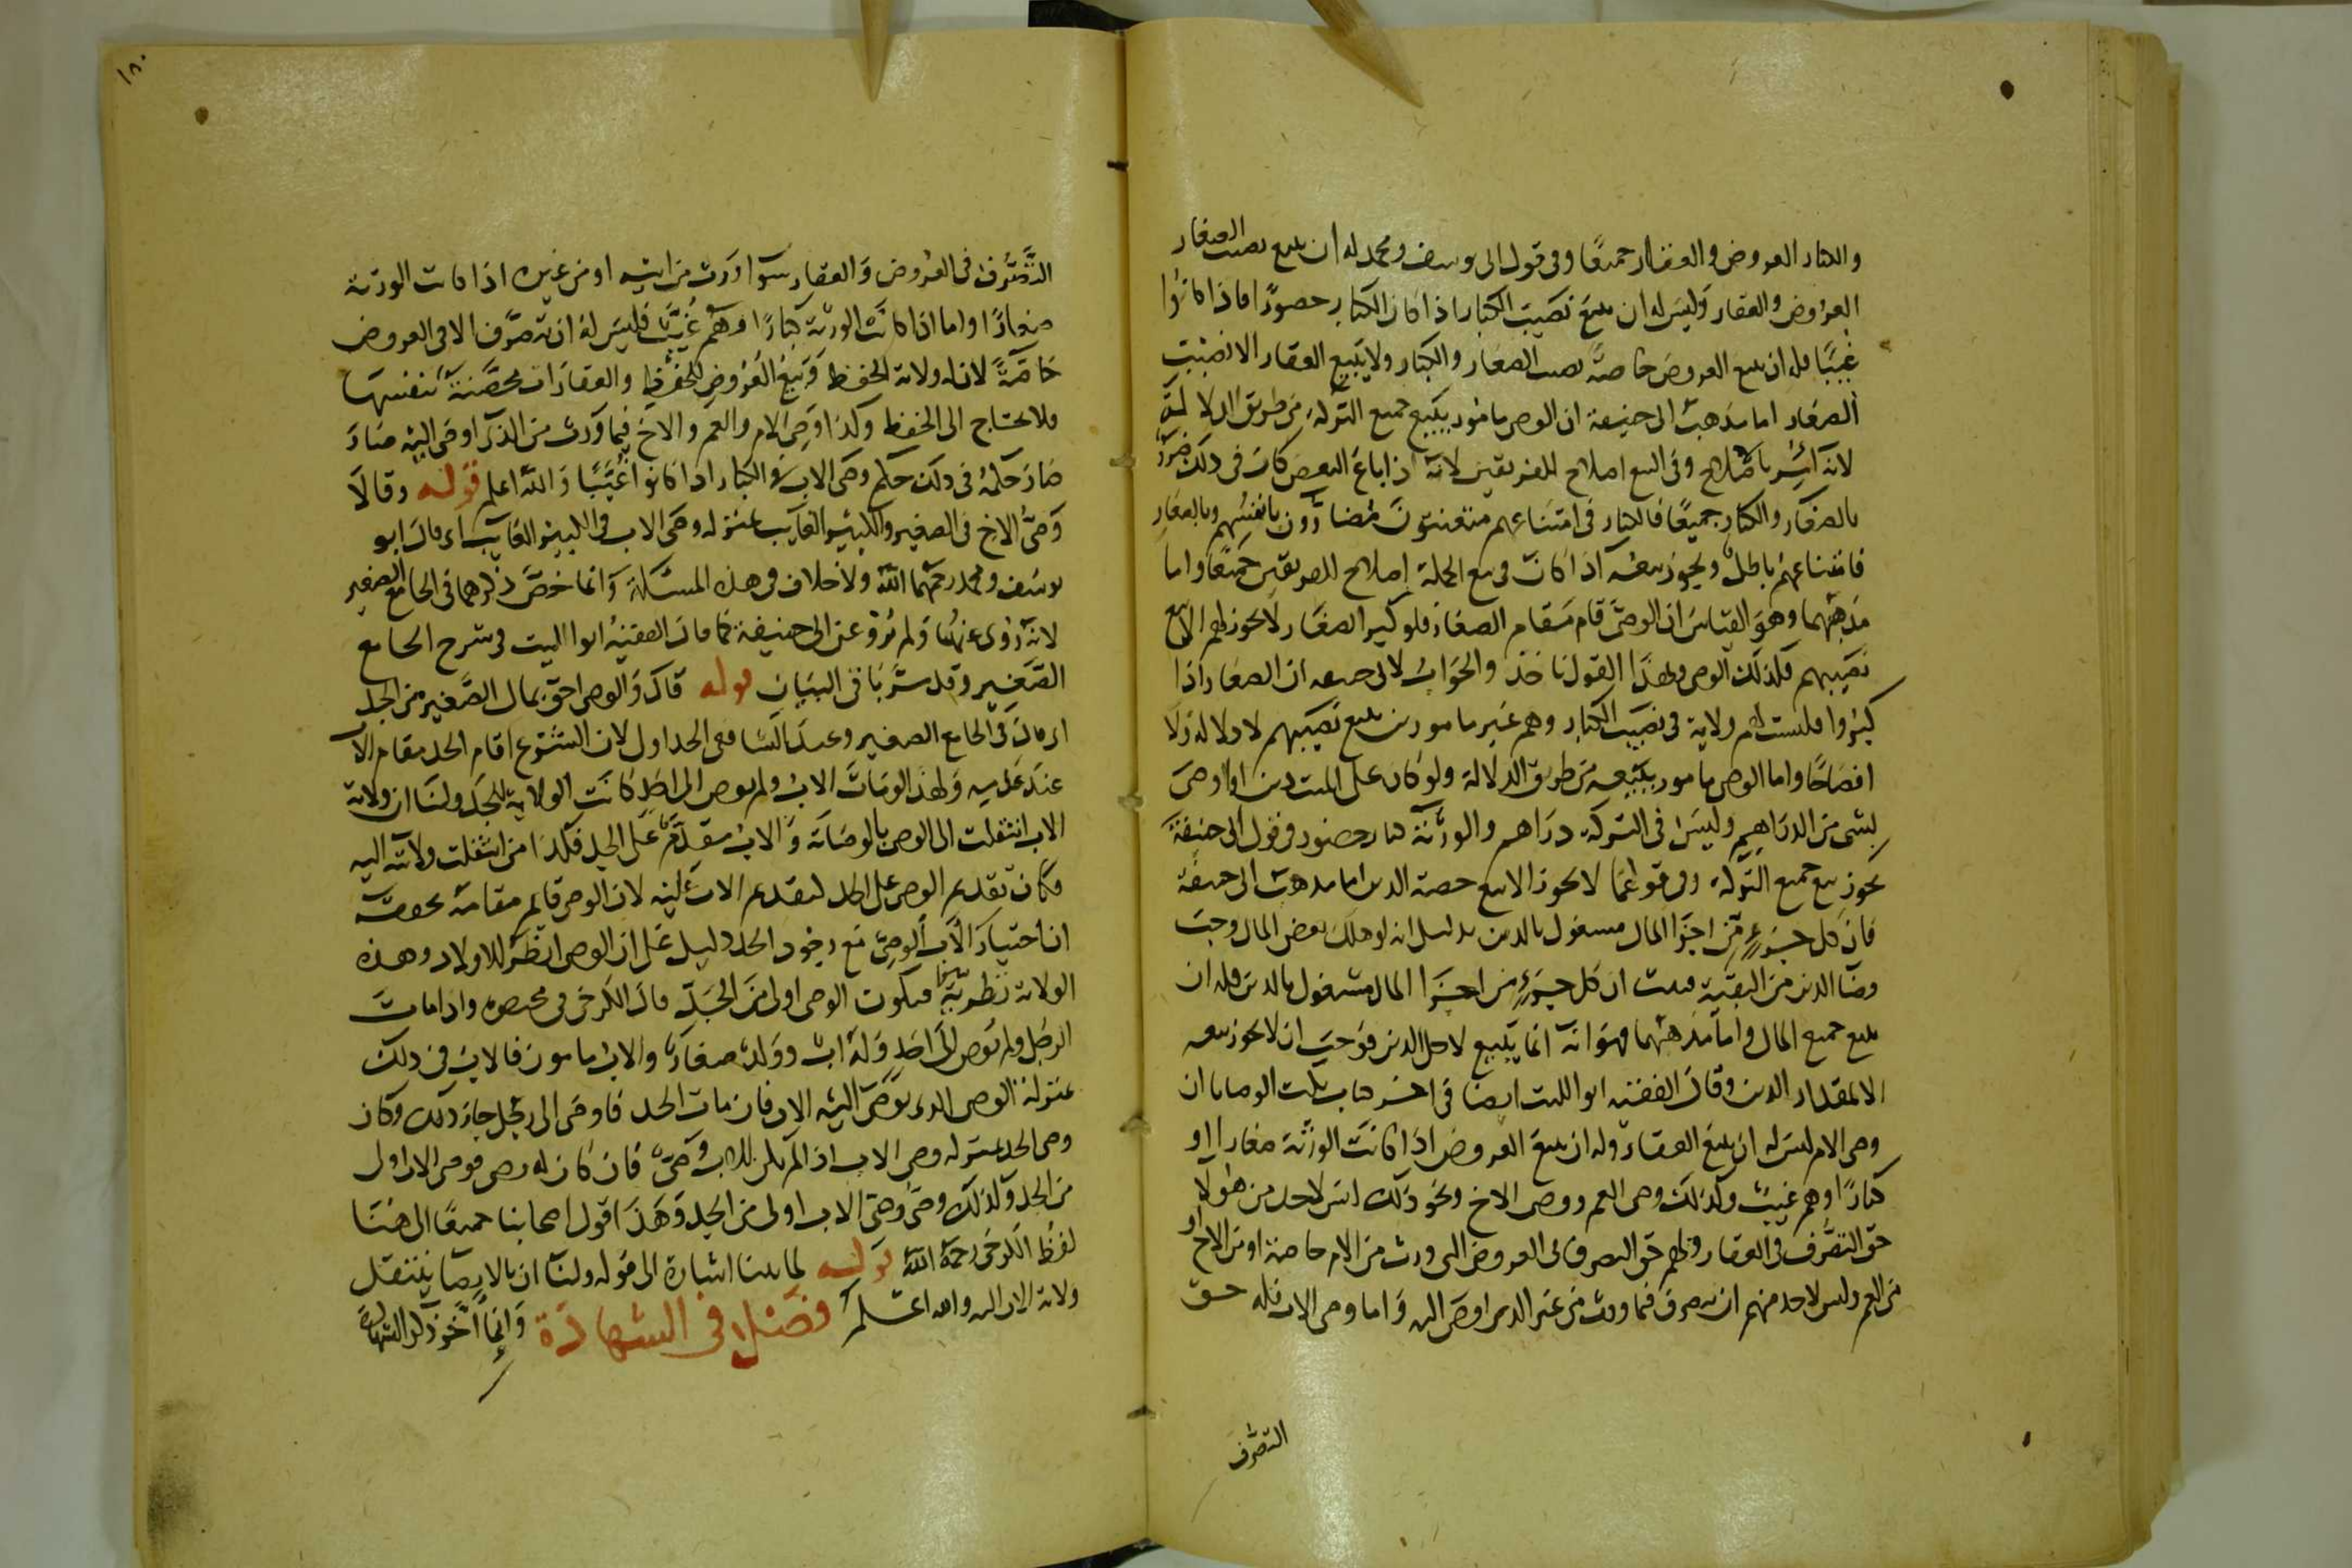 والكبار العروض والعقار جميعًا وفى قول ابى يوسف ومحمد له ان يبيع نصيب الصغار
العروض والعقار وليس له ان يبيع نصيب الكبار اذا كان الكبار حضورًا اما اذا كانوا
غيبًا فله ان يبيع العروض خاصة نصيب الصغار والكبار ولا يبيع العقار الا نصيب
الصغار اما مذهب ابى حنيفة ان الوصى مامور ببيع جميع التركة من طريق الدلالة
لانه امر باصلاح وفى البيع اصلاح للفريقين لانه اذا باع البعض كان فى ذلك ضرر
بالصغار والكبار جميعًا فالكبار فى امتناعهم متعنتون مضارون بانفسهم وبالصغار
فامتناعهم باطل ويجوز بيعه اذا كان فى بيع الجملة اصلاح للفريقين جميعًا واما
مذهبهما وهو القياس ان الوصى قام مقام الصغار فلو كبر الصغار لا يجوز لهم الا بيع
نصيبهم فكذلك الوصى وبهذا القول ناخذ والجواب لابى حنيفة ان الصغار اذا
كبروا فليست لهم ولاية فى نصيب الكبار وهم غير مامورين ببيع نصيبهم لا دلالة ولا
افصاحًا واما الوصى مامور ببيعه من طريق الدلالة ولو كان على الميت دين او اوصى
بشى من الدراهم وليس فى التركة دراهم والورثة كبار حضور فى قول ابى حنيفة
يجوز بيع جميع التركة وفى قولهما لا يجوز الا بيع حصة الدين اما مذهب ابى حنيفة
فان كل جزء من اجزا المال مشغول بالدين بدليل انه لو هلك بعض المال وجب
قضا الدين من البقية فثبت ان كل جزء من اجزا المال مشغول بالدين فله ان
يبيع جميع المال واما مذهبهما فهو انه انما يبيع لاجل الدين فوجب ان لا يجوز بيعه
الا بمقدار الدين وقال الفقيه ابو الليث ايضا فى اخر كتاب نكت الوصايا ان
وصى الام ليس له ان يبيع العقار وله ان يبيع العروض اذا كانت الورثة صغارا او
كبارًا وهم غيب وكذلك وصى العم ووصى الاخ ونحو ذلك ليس لاحد من هولا
حق التصرف فى العقار ولهم حق التصرف فى العروض التى ورث من الام خاصة او من الاخ او
من العم وليس لاحد منهم ان يتصرف فيما ورث من غير الذى اوصى اليه واما وصى الاب فله حق
التصرف
١٨٠
التصرف فى العروض والعقار سوا ورث من ابيه او من غيره اذا كانت الورثة
صغارًا واما اذا كانت الورثة كبارًا وهم غيب فليس له ان يتصرف الا فى العروض
خاصة لان له ولاية الحفظ وبيع العروض للحفظ والعقارات محصنة بنفسها
فلا يحتاج الى الحفظ وكذا وصى الام والعم والاخ فيما ورث من الذى اوصى اليه صار
صار حكمه فى ذلك حكم وصى الاب فى الكبار اذا كانوا غيبًا والله اعلم قوله وقالا
وصى الاخ فى الصغير والكبير الغايب بمنزلة وصى الاب فى الكبير الغايب اى قال ابو
يوسف ومحمد رحمهما الله ولا خلاف فى هذه المسئلة وانما خص ذكرهما فى الجامع الصغير
لانه روى عنهما ولم يرو عن ابى حنيفة كما قال الفقيه ابو الليث فى شرح الجامع
الصغير وقد مر بنا فى البيان قوله قال والوصى احق بمال الصغير من الجد
اى قال فى الجامع الصغير وعند الشافعى الجد اولى لان الشرع اقام الجد مقام الاب
عند عدمه ولهذا لو مات الاب ولم يوص الى احد كانت الولاية للجد ولنا ان ولاية
الاب انتقلت الى الوصى بالوصاية والاب مقدم على الجد فكذا من انتقلت ولايته اليه
فكان تقديم الوصى على الجد كتقديم الاب عليه لان الوصى قايم مقامه يحققه
ان اختيار الاب الوصى مع وجود الجد دليل على ان الوصى انظر للاولاد وهذه
الولاية نظرية فيكون الوصى اولى من الجد قال الكرخى فى مختصره واذا مات
الرجل ولم يوص الى احد وله اب وولد صغار والاب مامون فالاب فى ذلك
بمنزلة الوصى الذى يوصى اليه الاب فان مات الجد فاوصى الى رجل جاز ذلك وكان
وصى الجد بمنزلة وصى الاب اذا لم يكن للاب وصى فان كان له وصى فوصى الاب اولى
من الجد وكذلك وصى وصى الاب اولى من الجد وهذا قول اصحابنا جميعًا الى هنا
لفظ الكرخى رحمه الله قوله لما بينا اشارة الى قوله ولنا ان بالايصا ينتقل
ولاية الاب اليه والله اعلم فصل فى الشهادة وانما اخر ذكر الشهادة